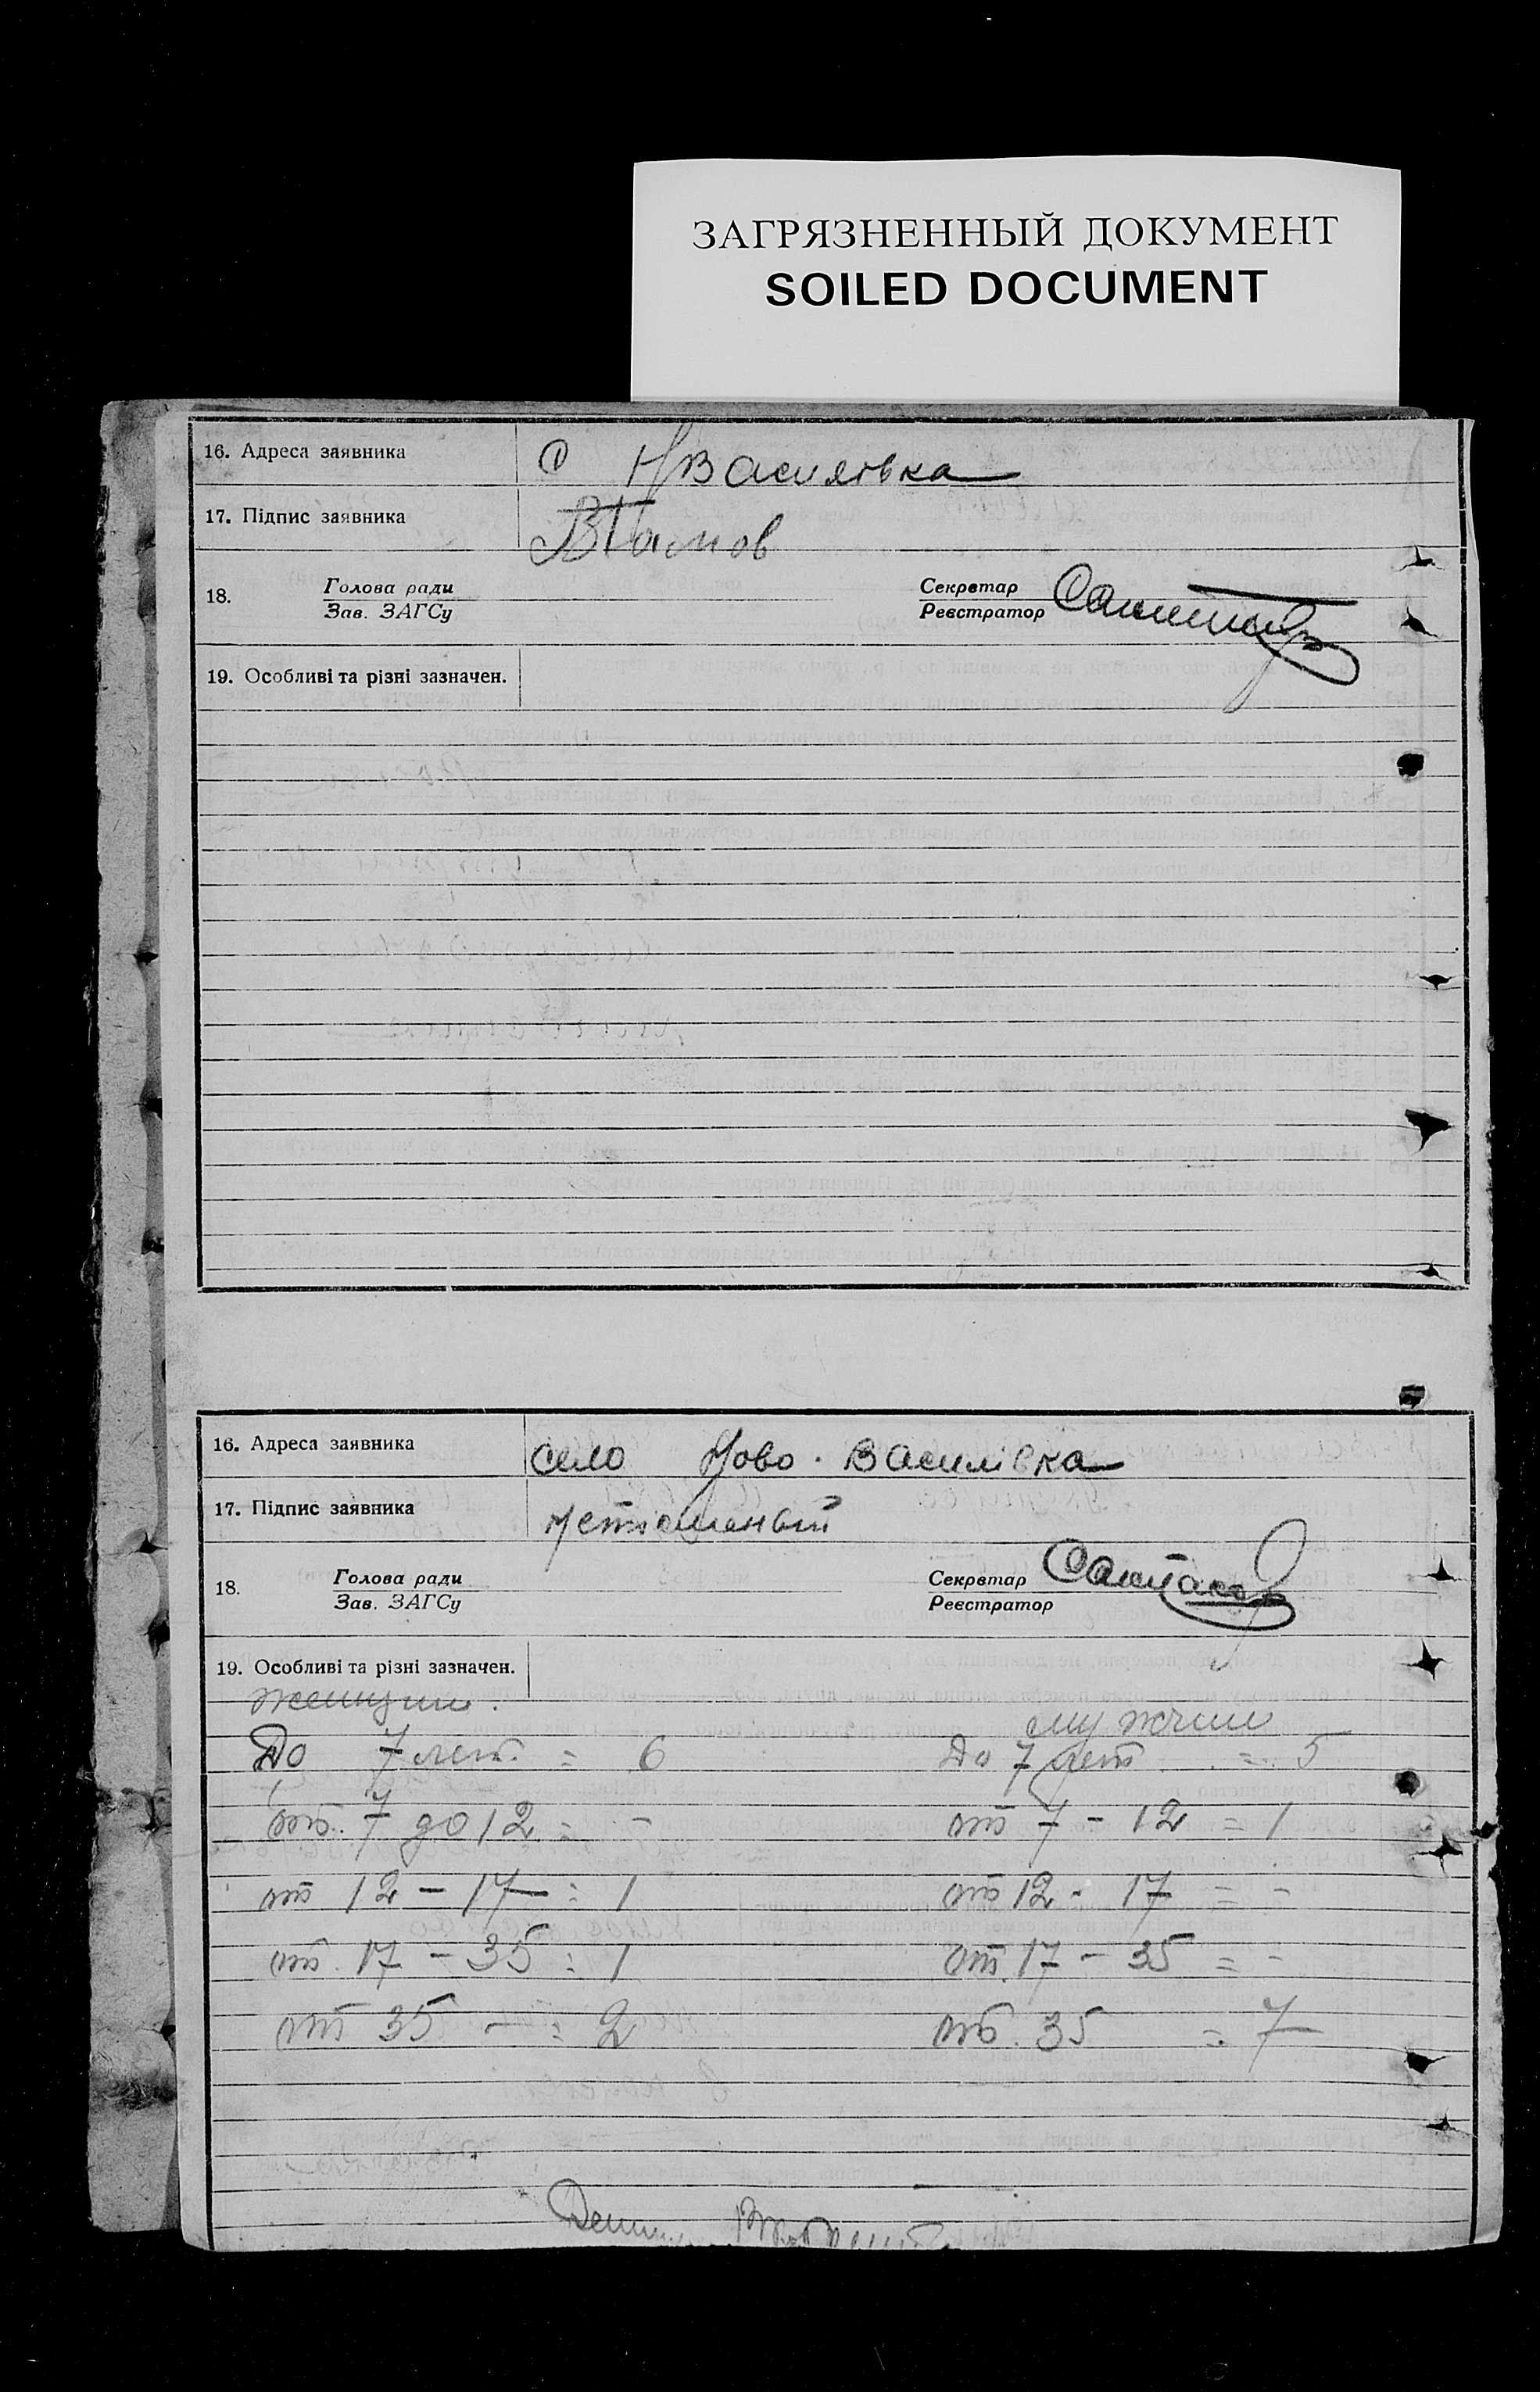 ЗАГРЯЗНЕННЫЙ ДОКУМЕНТ
SOILED DOCUMENT
16. Адреса заявника С НВасилівка
17. Підпис заявника
18. Голова ради Секретар
Зав. ЗАГСу Реєстратор
19. Особливі та різні зазначен.
16. Адреса заявника село Ново-Василівка
17. Підпис заявника
18. Голова ради Секретар
Зав. ЗАГСу Реєстратор
19. Особливі та різні зазначен.
женщин. мужчин
До 7 лет. = 6 До 7 лет = 5
от. 7 до 12 = - от 7 - 12 = 1
от 12 - 17 = 1 от 12 - 17 = -
от. 17 - 35 = 1 от. 17 - 35 = -
от 35 - = 2 от. 35 = 7